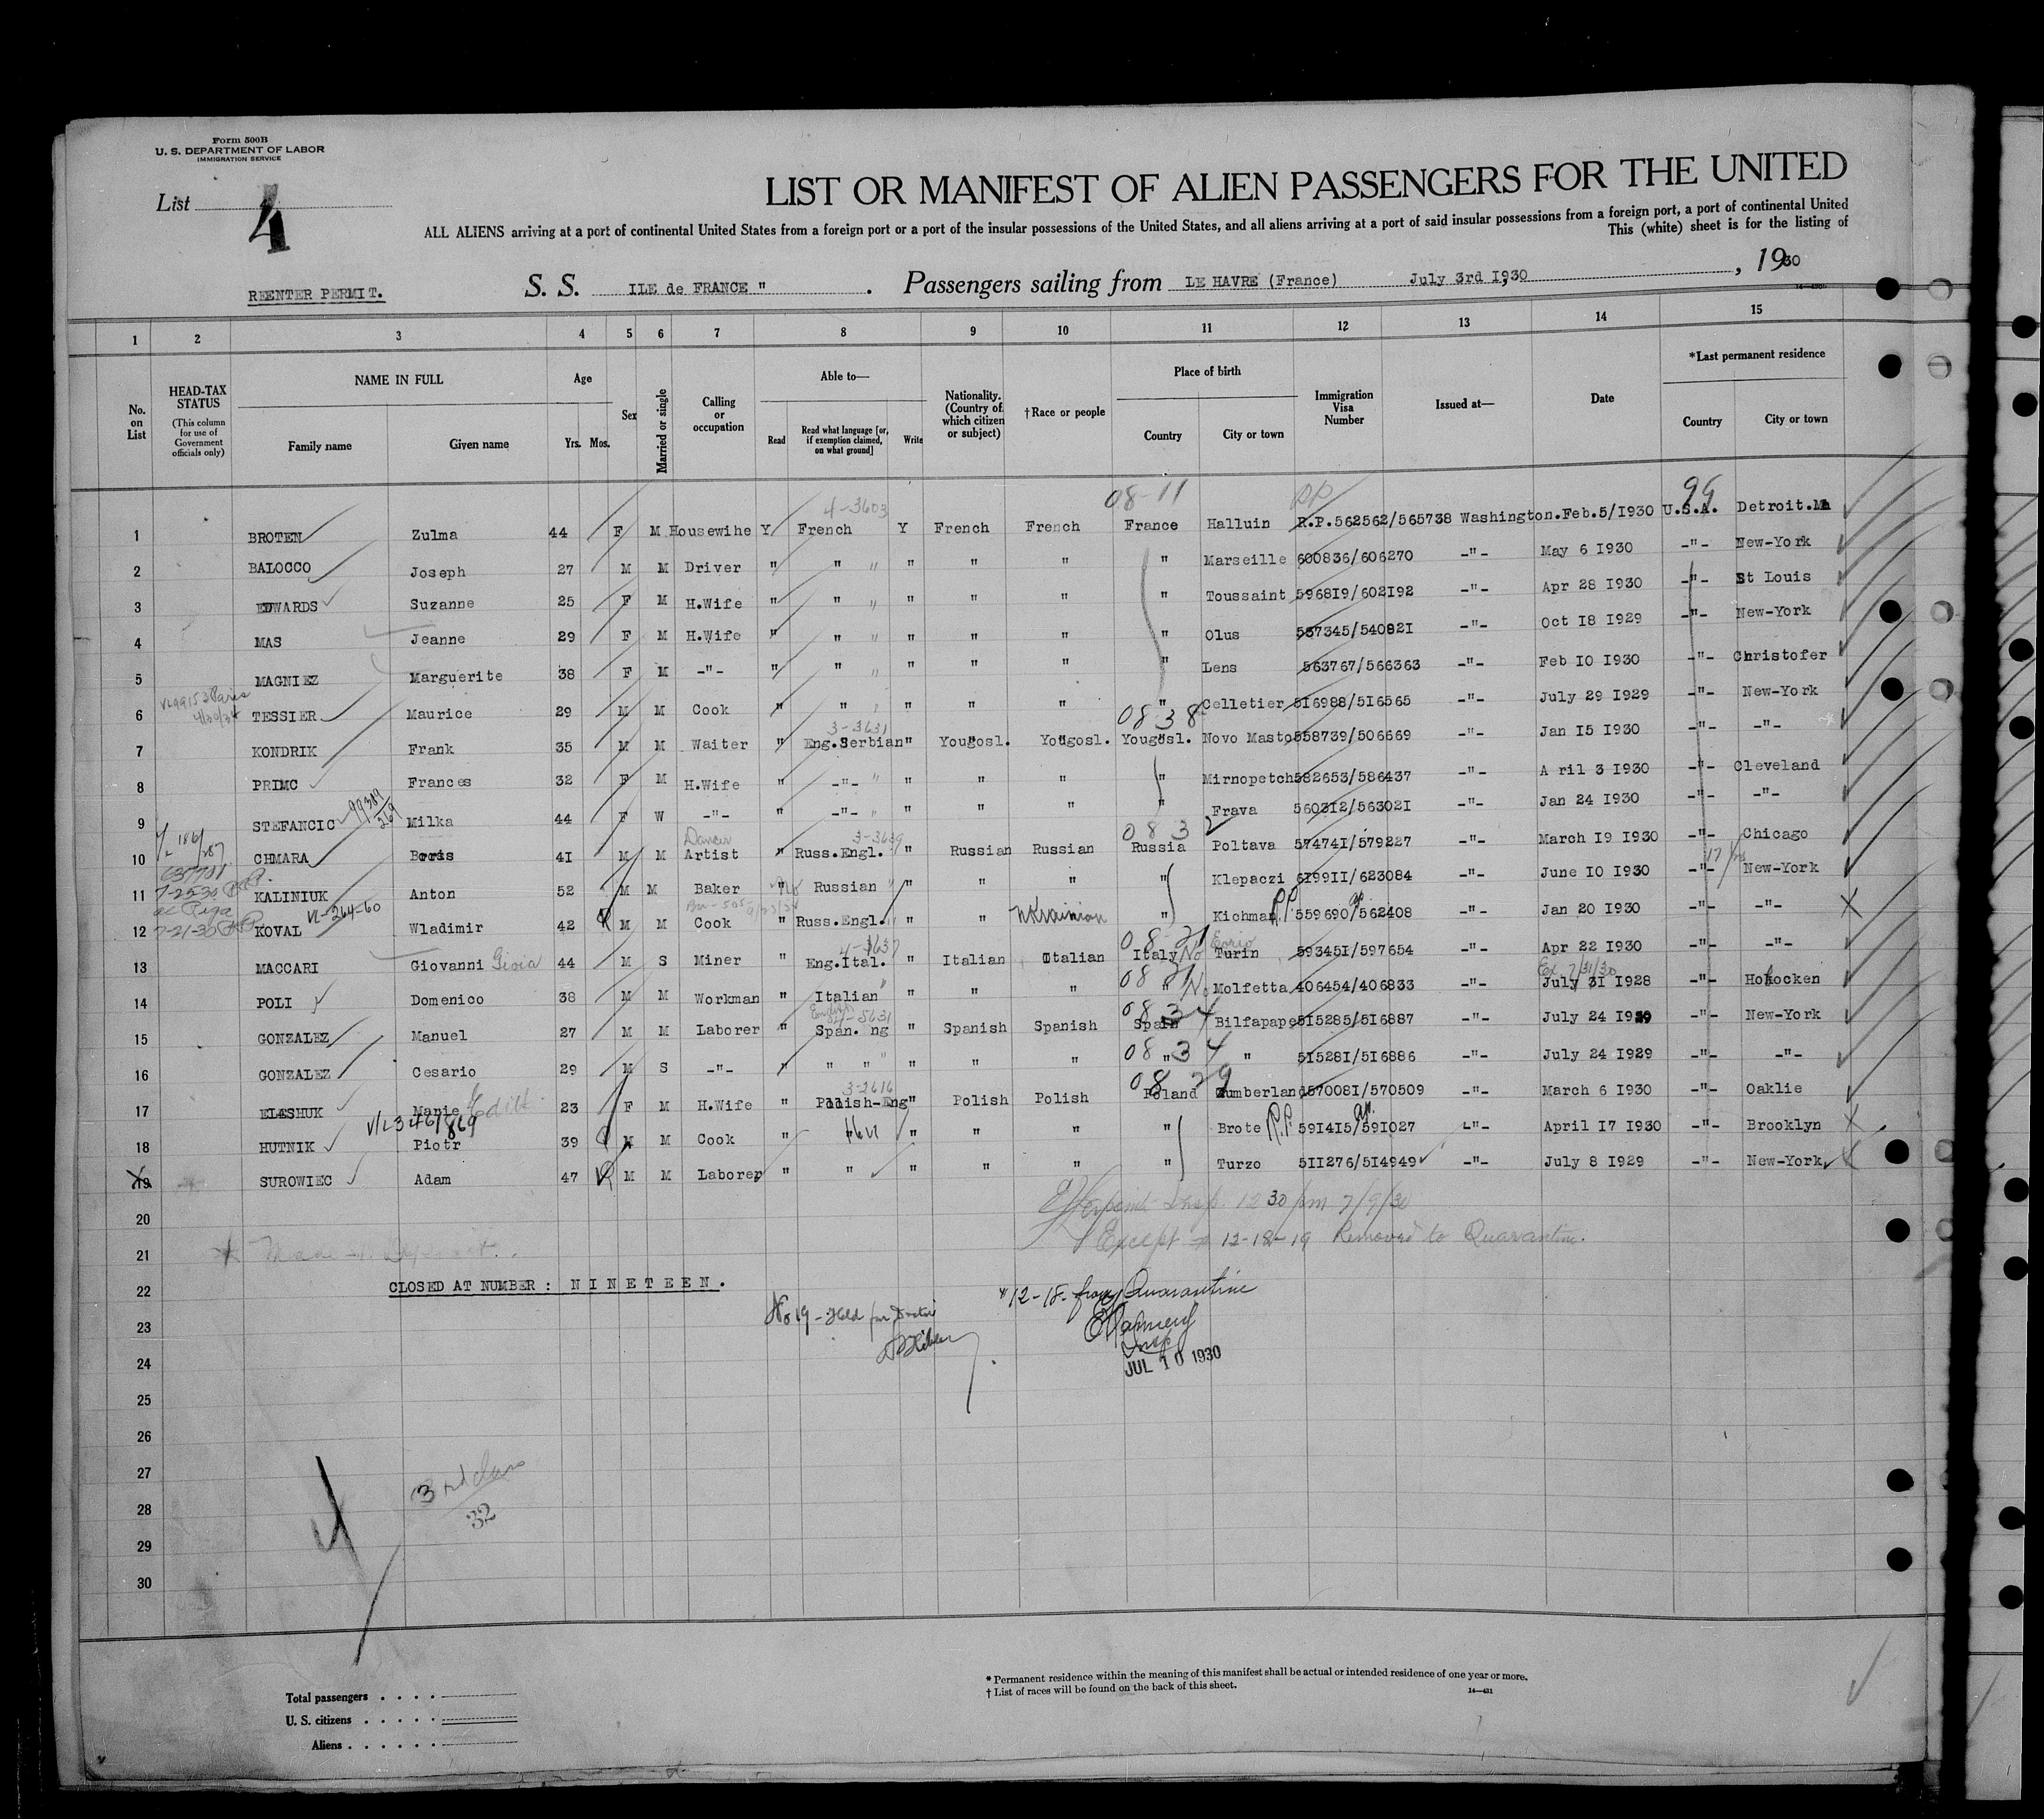 Form 500B
U. S. DEPARTMENT OF LABOR
IMMIGRATION SERVICE
List 4
LIST OR MANIFEST OF ALIEN PASSENGERS FOR THE UNITED
ALL ALIENS arriving at a port of continental United States from a foreign port or a port of the insular possessions of the United States, and all aliens arriving at a port of said insular possessions from a foreign port, a port of continental United
This (white) sheet is for the listing of
REENTER PERMIT.
S. S. ILE de FRANCE " . Passengers sailing from LE HAVRE (France) July 3rd I930 , 1930
1 2 3 4 5 6 7 8 9 10 11 12 13 14 15
No. on List
HEAD-TAX STATUS (This column for use of Government officials only)
NAME IN FULL Family name Given name
Age Yrs. Mos.
Sex
Married or single
Calling or occupation
Able to— Read Read what language [or, if exemption claimed, on what ground] Write
Nationality. (Country of which citizen or subject)
†Race or people
Place of birth Country City or town
Immigration Visa Number
Issued at—
Date
*Last permanent residence Country City or town
4-3603 08-11 PP 99
1 BROTEN Zulma 44 F M Housewihe Y French Y French French France Halluin R.P.562562/565738 Washington.Feb.5/I930 U.S.A. Detroit.
2 BALOCCO Joseph 27 M M Driver " " " " " " " Marseille 600836/606270 -"- May 6 I930 -"- New-York
3 EDWARDS Suzanne 25 F M H.Wife " " " " " " " Toussaint 5968I9/602I92 -"- Apr 28 I930 -"- St Louis
4 MAS Jeanne 29 F M H.Wife " " " " " " " Olus 537345/54082I -"- Oct I8 I929 -"- New-York
5 MAGNIEZ Marguerite 38 F M -"- " " " " " " " Lens 563767/566363 -"- Feb I0 I930 -"- Christofer
6 TESSIER Maurice 29 M M Cook " " " " " " " Celletier 5I6988/5I6565 -"- July 29 I929 -"- New-York
3-3631 08 38
7 KONDRIK Frank 35 M M Waiter " Eng.Serbian " Yougosl. Yougosl. Yougosl. Novo Masto 558739/506669 -"- Jan I5 I930 -"- -"-
8 PRIMC Frances 32 F M H.Wife " -"- " " " " " Mirnopetch 582653/586437 -"- A ril 3 I930 -"- Cleveland
9 STEFANCIC Milka 44 F W -"- " -"- " " " " " Frava 5603I2/56302I -"- Jan 24 I930 -"- -"-
Dancer 3-3639 083
10 CHMARA Boris 4I M M Artist " Russ.Engl. " Russian Russian Russia Poltava 57474I/579227 -"- March I9 I930 -"- Chicago
11 KALINIUK Anton 52 M M Baker " Russian " " " " Klepaczi 6I99II/623084 -"- June I0 I930 -"- New-York
VL-264-60
12 KOVAL Wladimir 42 M M Cook " Russ.Engl. " " Ukrainian " Kichman R.P. 559690/562408 -"- Jan 20 I930 -"- -"-
4-3637 08 21
13 MACCARI Giovanni Gioia 44 M S Miner " Eng.Ital. " Italian Italian Italy No Turin 59345I/597654 -"- Apr 22 I930 -"- -"-
08 21 Ex 7/31/30
14 POLI Domenico 38 M M Workman " Italian " " " " No Molfetta 406454/406833 -"- July 3I I928 -"- Hobocken
08 34
15 GONZALEZ Manuel 27 M M Laborer " Span. ng " Spanish Spanish Spain Bilfapape 5I5285/5I6887 -"- July 24 I929 -"- New-York
08 34
16 GONZALEZ Cesario 29 M S -"- " " " " " " " " 5I528I/5I6886 -"- July 24 I929 -"- -"-
3-2616 08 29
17 ELASHUK Marie Edilt 23 F M H.Wife " Polish-Eng " Polish Polish Poland Cumberland 57008I/570509 -"- March 6 I930 -"- Oaklie
18 HUTNIK Piotr 39 M M Cook " " " " " " Brote R.P. 59I4I5/59I027 -"- April I7 I930 -"- Brooklyn
19 SUROWIEC Adam 47 M M Laborer " " " " " " Turzo 5II276/5I4949 -"- July 8 I929 -"- New-York
20 Insp. 12 30 pm 7/9/30
21 Except # 12-18-19 Removed to Quarantine.
22 CLOSED AT NUMBER : N I N E T E E N .
#12-18- from Quarantine
23 No 19 - Held for Doctor
Insp
24 JUL 10 1930
25
26
27
3rd class
28
32
29
30
Total passengers
U. S. citizens
Aliens
* Permanent residence within the meaning of this manifest shall be actual or intended residence of one year or more.
† List of races will be found on the back of this sheet.
14—431